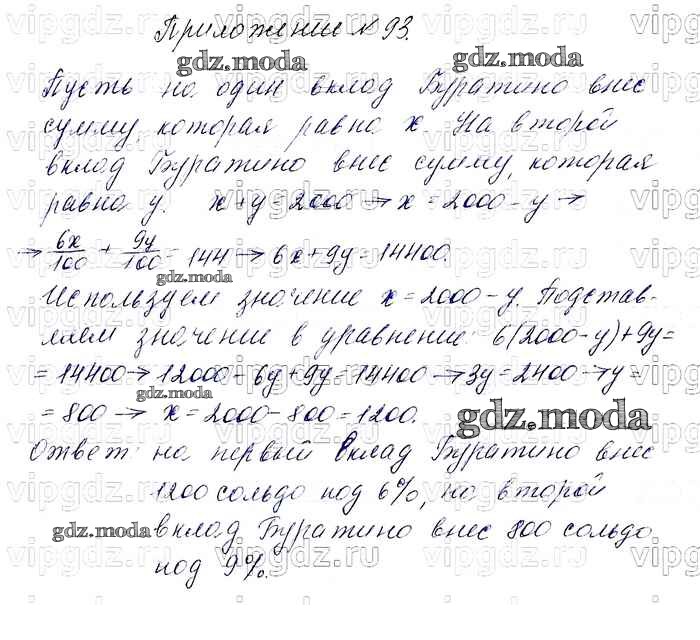 Приложение № 93.
Пусть на один вклад Буратино внес
сумму, которая равна x. На второй
вклад Буратино внес сумму, которая
равна y. x + y = 2000 → x = 2000 - y →
→ 6x/100 + 9y/100 = 144 → 6x + 9y = 14400.
Используем значение x = 2000 - y. Подстав-
ляем значение в уравнение: 6(2000 - y) + 9y =
= 14400 → 12000 - 6y + 9y = 14400 → 3y = 2400 → y =
= 800 → x = 2000 - 800 = 1200.
Ответ: на первый вклад Буратино внес
1200 сольдо под 6%, на второй
вклад Буратино внес 800 сольдо
под 9%.
gdz.moda
gdz.moda
gdz.moda
gdz.moda
gdz.moda
gdz.moda
vipgdz.ru